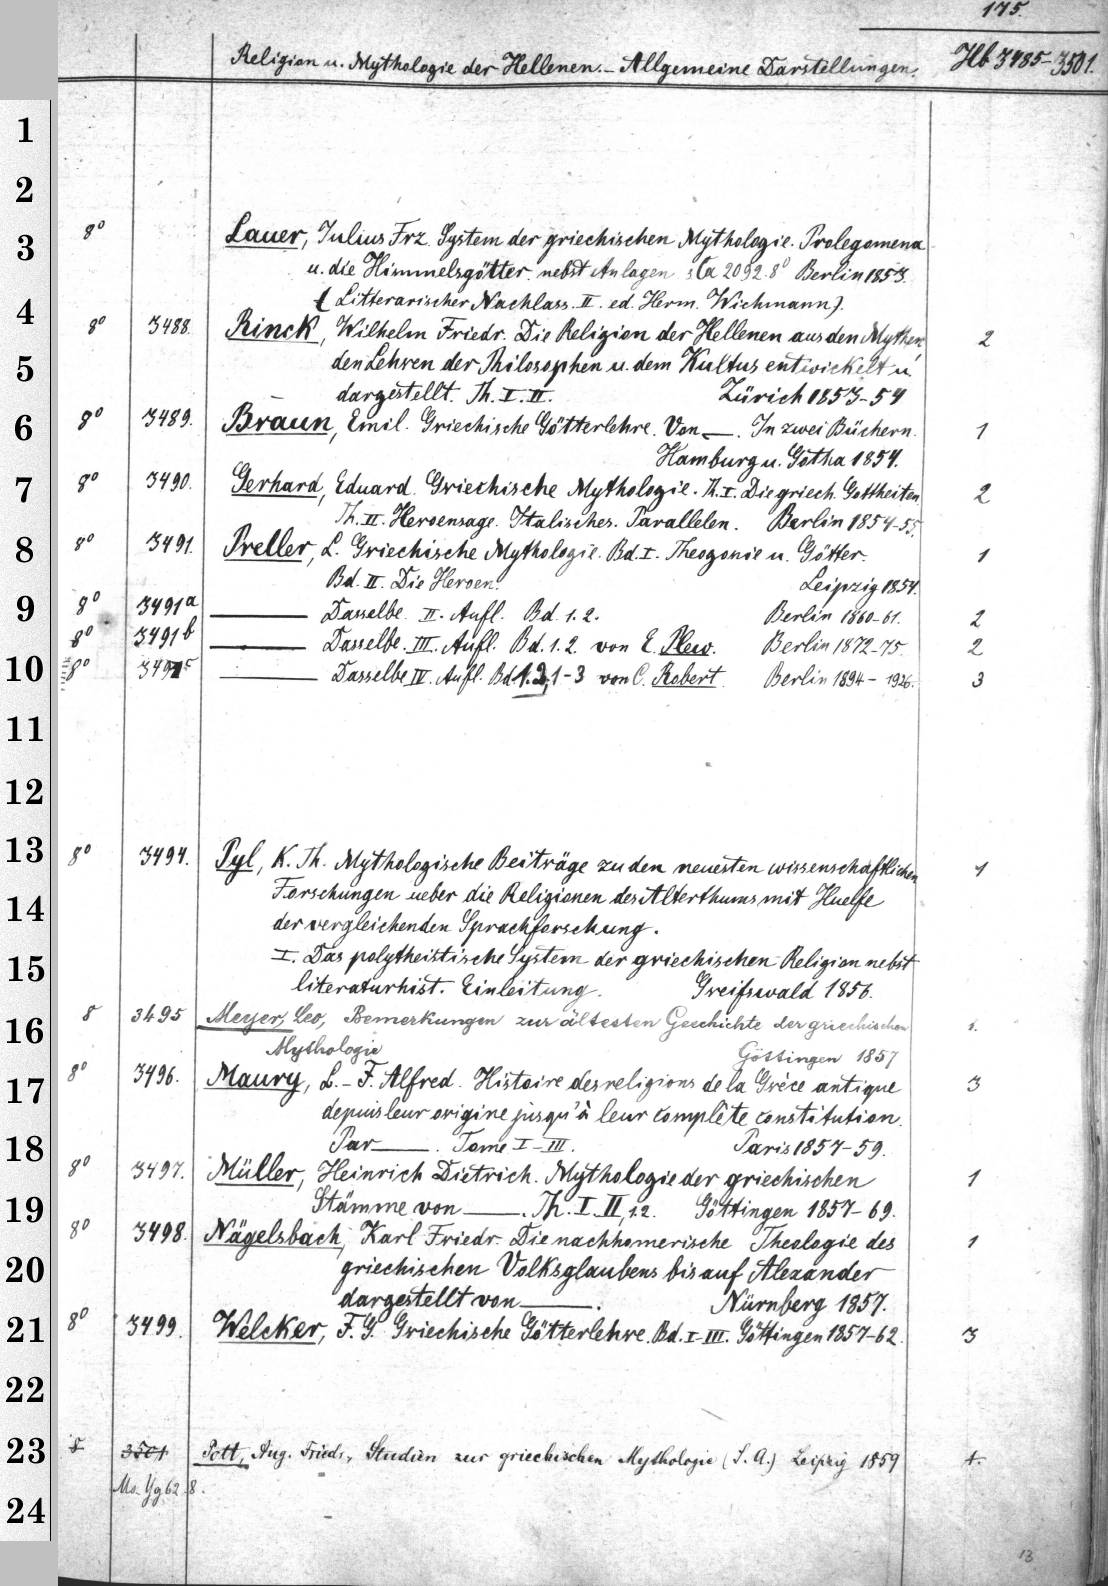 175.
Religion u. Mythologie der Hellenen. – Allgemeine Darstellungen. Hb 3485–3501.
1
2
3
4
5
6
7
8
9
10
11
12
13
14
15
16
17
18
19
20
21
22
23
24
8° Lauer, Julius Frz. System der griechischen Mythologie. Prolegomena
u. die Himmelsgötter nebst Anlagen 2092. 8° Berlin 1853.
(Litterarischer Nachlass. II. ed. Herm. Wichmann).
8° 3488. Rinck, Wilhelm Friedr. Die Religion der Hellenen aus den Mythen 2
den Lehren der Philosophen u. dem Kultus entwickelt u
dargestellt. Th. I. II. Zürich 1853–54
8° 3489. Braun, Emil. Griechische Götterlehre. Von —. In zwei Büchern. 1
Hamburg u. Gotha 1854.
8° 3490. Gerhard, Eduard. Griechische Mythologie. Th. I. Die griech. Gottheiten 2
Th. II. Heroensage. Italisches. Parallelen. Berlin 1854–55.
8° 3491. Preller, L. Griechische Mythologie. Bd. I. Theogonie u. Götter. 1
Bd. II. Die Heroen. Leipzig 1854.
8° 3491a — Dasselbe. II. Aufl. Bd. 1. 2. Berlin 1860–61. 2
8° 3491b — Dasselbe. III. Aufl. Bd. 1. 2 von E. Plew. Berlin 1872–75. 2
8° 3491c — Dasselbe IV. Aufl. Bd. 1. 2, 1–3 von C. Robert Berlin 1894– 1926. 3
8° 3494. Pyl, K. Th. Mythologische Beiträge zu den neuesten wissenschaftlichen 1
Forschungen ueber die Religionen des Alterthums mit Huelfe
der vergleichenden Sprachforschung.
I. Das polytheistische System der griechischen Religion nebst
literaturhist. Einleitung. Greifswald 1856.
8 3495 Meyer, Leo, Bemerkungen zur ältesten Geschichte der griechischen 1.
Mythologie Göttingen 1857
8° 3496. Maury, L.–F. Alfred. Histoire des religions de la Grèce antique 3
depuis leur origine jusqu'à leur complète constitution.
Par —. Tome I–III. Paris 1857–59.
8° 3497. Müller, Heinrich Dietrich. Mythologie der griechischen 1
Stämme von —. Th. I. II, 1.2. Göttingen 1857–69.
8° 3498. Nägelsbach, Karl Friedr. Die nachhomerische Theologie des 1
griechischen Volksglaubens bis auf Alexander
dargestellt von —. Nürnberg 1857.
8° 3499. Welcker, F. G. Griechische Götterlehre. Bd. I–III. Göttingen 1857–62. 3
8 3501 Pott, Aug. Friedr., Studien zur griechischen Mythologie (S. A.) Leipzig 1859 1.
Ms. Yg 62. 8.
13